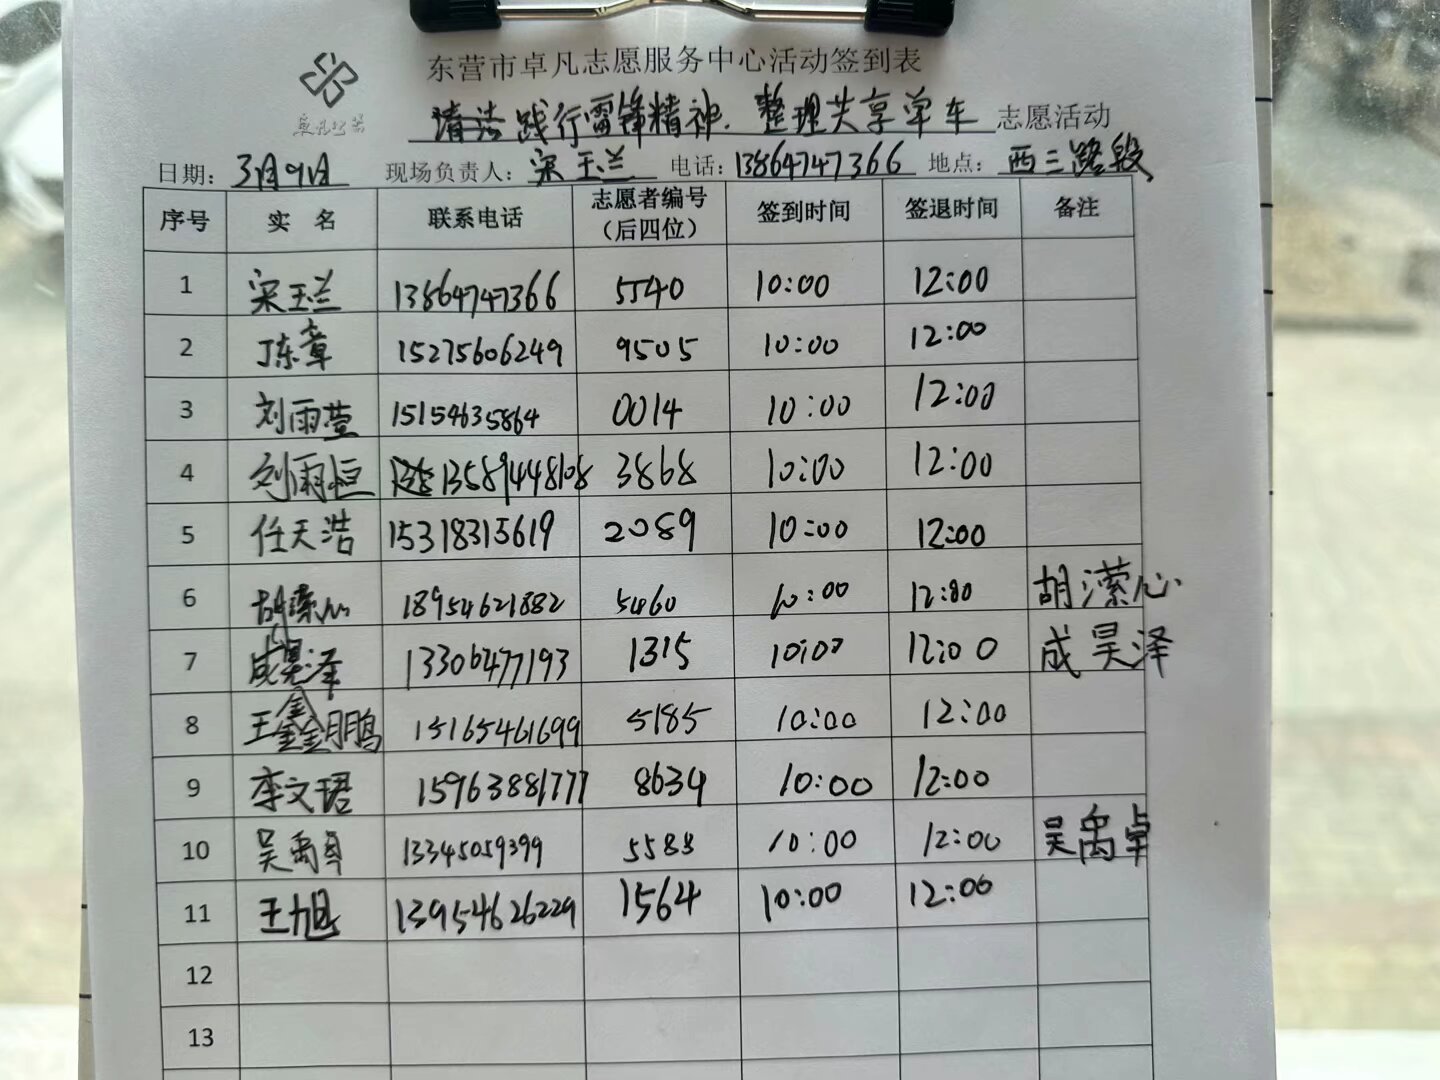 东营市卓凡志愿服务中心活动签到表
卓凡公益
清洁践行雷锋精神.整理共享单车志愿活动
日期:3月9日 现场负责人:宋玉兰 电话:13864747366 地点:西三路段
序号 实 名 联系电话 志愿者编号(后四位) 签到时间 签退时间 备注
1 宋玉兰 13864747366 5540 10:00 12:00
2 丁东章 15275606249 9505 10:00 12:00
3 刘雨萱 15154635864 0014 10:00 12:00
4 刘雨恒 13589448108 3868 10:00 12:00
5 任天浩 15318315619 2089 10:00 12:00
6 胡潆心 18954621882 5460 10:00 12:00 胡潆心
7 成昊泽 13306477193 1315 10:00 12:00 成昊泽
8 王鑫鹏 15165461699 5185 10:00 12:00
9 李文珺 15963881777 8634 10:00 12:00
10 吴禹卓 13345059399 5588 10:00 12:00 吴禹卓
11 王旭 13954626229 1564 10:00 12:00
12
13